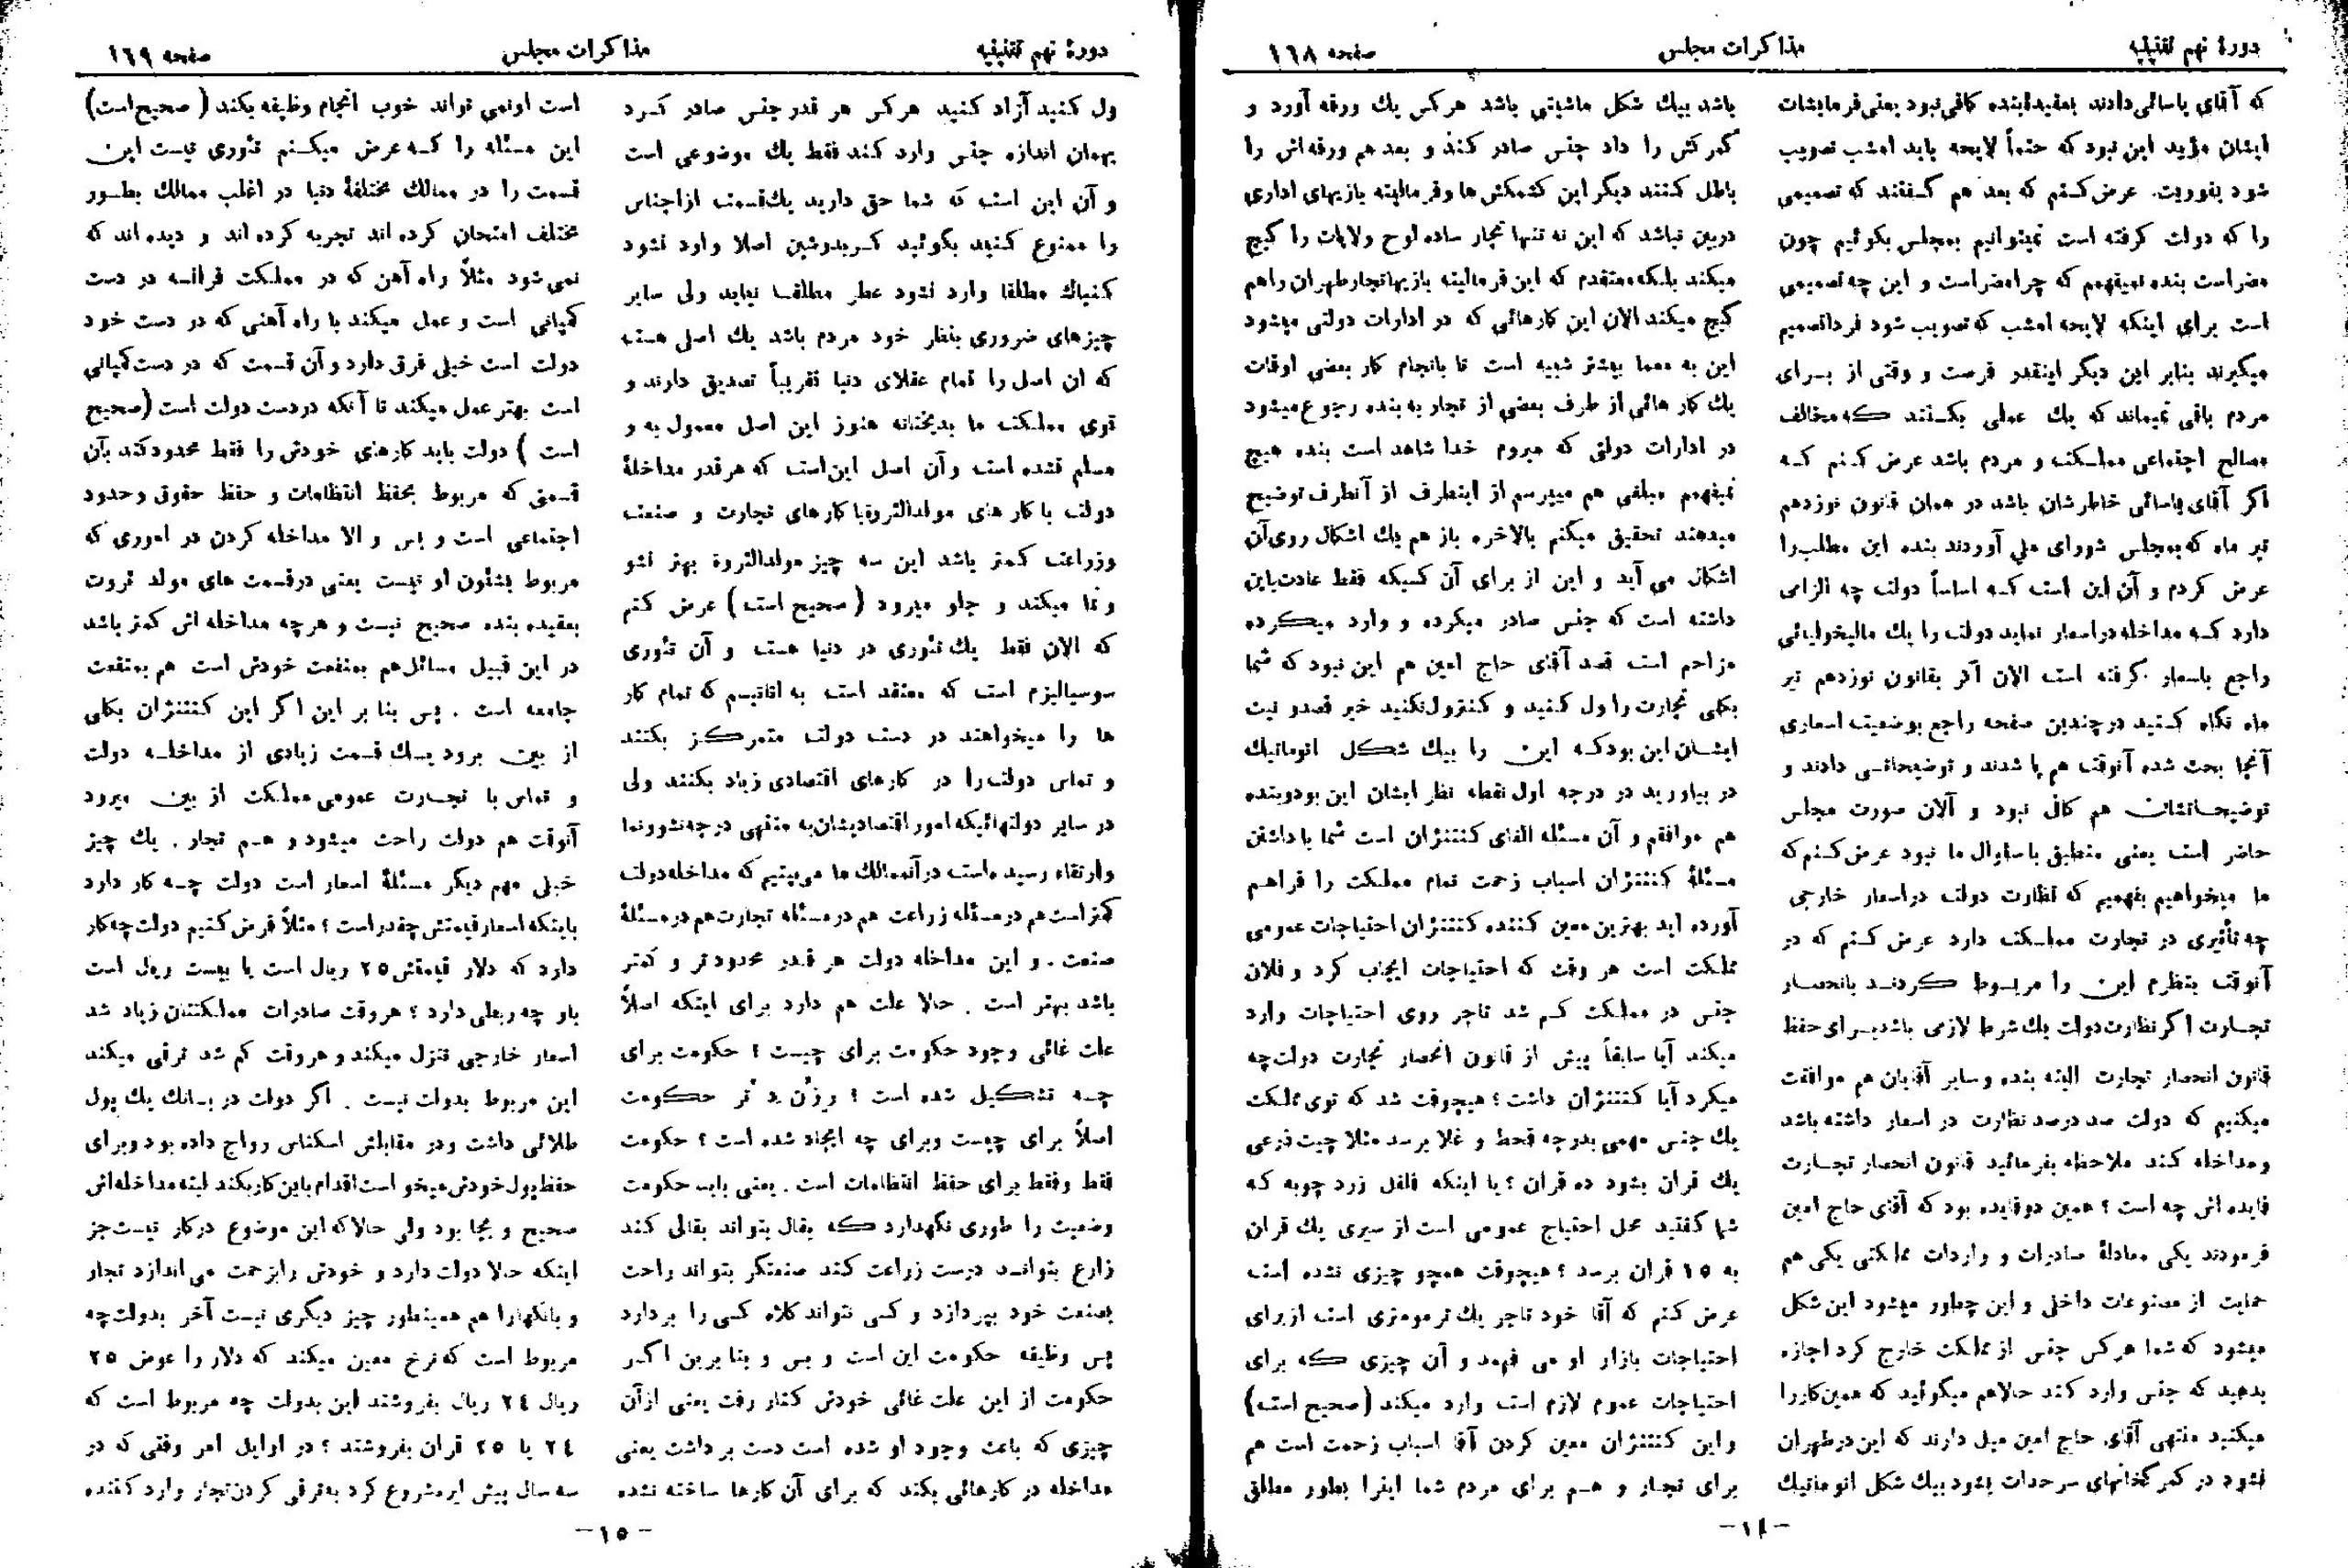 دورهٔ نهم تقنینیه
مذاکرات مجلس
صفحه ۱۶۸
که آقای یاسائی دادند بعقیدهٔ بنده کافی نبود یعنی فرمایشات
ایشان مؤید این نبود که حتماً لایحه باید امشب تصویب
شود بفوریت. عرض کنم که بعد هم گفتند که تصمیمی
را که دولت گرفته است نمیتوانیم بمجلس بگوئیم چون
مضر است بنده نمیفهمم که چرا مضر است و این چه تصمیمی
است برای اینکه لایحه امشب که تصویب شود فردا تصمیم
میگیرند بنابر این دیگر اینقدر فرصت و وقتی از برای
مردم باقی نمیماند که یك عملی بکنند که مخالف
مصالح اجتماعی مملکت و مردم باشد عرض کنم که
اگر آقای یاسائی خاطرشان باشد در همان قانون نوزدهم
تیر ماه که بمجلس شورای ملی آوردند بنده این مطلب را
عرض کردم و آن این است که اساساً دولت چه الزامی
دارد که مداخله در اسعار نماید دولت را یك مالیخولیائی
راجع باسعار گرفته است الان اگر بقانون نوزدهم تیر
ماه نگاه کنید در چندین صفحه راجع بوضعیت اسعاری
آنجا بحث شده آنوقت هم پا شدند و توضیحاتی دادند و
توضیحاتشان هم کافی نبود و الان صورت مجلس
حاضر است یعنی منطبق با سئوال ما نبود عرض کنم که
ما میخواهیم بفهمیم که نظارت دولت در اسعار خارجی
چه تأثیری در تجارت مملکت دارد عرض کنم که در
آنوقت بنظرم این را مربوط کردند بانحصار
تجارت اگر نظارت دولت یك شرط لازمی باشد برای حفظ
قانون انحصار تجارت البته بنده و سایر آقایان هم موافقت
میکنیم که دولت صد درصد نظارت در اسعار داشته باشد
و مداخله کند ملاحظه بفرمائید قانون انحصار تجارت
فایده اش چه است ؟ همین دو فایده بود که آقای حاج امین
فرمودند یکی معادلهٔ صادرات و واردات مملکتی یکی هم
حمایت از مصنوعات داخلی و این چطور میشود این شکل
میشود که شما هر کس جنس از مملکت خارج کرد اجازه
بدهید که جنس وارد کند حالاهم میگوئید که همین کار را
میکنید منتهی آقای حاج امین میل دارند که این در طهران
نشود در گمرکخانهای سرحدات بشود بیك شکل اتوماتیك
باشد بیك شکل ماشینی باشد هر کس یك ورقه آورد و
گمرکش را داد جنس صادر کند و بعد هم ورقه اش را
باطل کنند دیگر این کشمکش ها و فرمالیته بازیهای اداری
در بین نباشد که این نه تنها تجار ساده لوح ولایات را گیج
میکند بلکه معتقدم که این فرمالیته بازیها تجار طهران را هم
گیج میکند الان این کارهائی که در ادارات دولتی میشود
این به معما بیشتر شبیه است تا بانجام کار بعضی اوقات
یك کار هائی از طرف بعضی از تجار به بنده رجوع میشود
در ادارات دولتی که میروم خدا شاهد است بنده هیچ
نمیفهمم مبلغی هم میپرسم از اینطرف از آنطرف توضیح
میدهند تحقیق میکنم بالاخره باز هم یك اشکال روی آن
اشکال می آید و این از برای آن کسیکه فقط عادت باین
داشته است که جنس صادر میکرده و وارد میکرده
مزاحم است قصد آقای حاج امین هم این نبود که شما
بکلی تجارت را ول کنید و کنترول نکنید خیر قصد و نیت
ایشان این بود که این را بیك شکل اتوماتیك
در بیاورید در درجه اول نقطه نظر ایشان این بود و بنده
هم موافقم و آن مسئله الغای کنتنژان است شما با داشتن
مسئلهٔ کنتنژان اسباب زحمت تمام مملکت را فراهم
آورده اید بهترین معین کننده کنتنژان احتیاجات عمومی
مملکت است هر وقت که احتیاجات ایجاب کرد و فلان
جنس در مملکت کم شد تاجر روی احتیاجات وارد
میکند آیا سابقاً پیش از قانون انحصار تجارت دولت چه
میکرد آیا کنتنژان داشت ؟ هیچوقت شد که توی مملکت
یك جنس مهمی بدرجه قحط و غلا برسد مثلا چیت ذرعی
یك قران بشود ده قران ؟ یا اینکه فلفل زرد چوبه که
شما گفتید محل احتیاج عمومی است از سیری یك قران
به ۱۵ قران برسد ؟ هیچوقت همچو چیزی نشده است
عرض کنم که آقا خود تاجر یك ترمومتری است از برای
احتیاجات بازار او می فهمد و آن چیزی که برای
احتیاجات عموم لازم است وارد میکند (صحیح است)
و این کنتنژان معین کردن آقا اسباب زحمت است هم
برای تجار و هم برای مردم شما اینرا بطور مطلق
دورهٔ نهم تقنینیه
مذاکرات مجلس
صفحه ۱۶۹
ول کنید آزاد کنید هر کس هر قدر جنس صادر کرد
بهمان اندازه جنس وارد کند فقط یك موضوعی است
و آن این است که شما حق دارید یك قسمت از اجناس
را ممنوع کنید بگوئید کرپدوشین اصلا وارد نشود
کنیاك مطلقا وارد نشود عطر مطلقا نیاید ولی سایر
چیزهای ضروری بنظر خود مردم باشد یك اصلی هست
که ان اصل را تمام عقلای دنیا تقریباً تصدیق دارند و
توی مملکت ما بدبختانه هنوز این اصل معمول به و
مسلم نشده است و آن اصل این است که هر قدر مداخلهٔ
دولت با کار های مولدالثروة با کارهای تجارت و صنعت
وزراعت کمتر باشد این سه چیز مولدالثروة بهتر نشو
و نما میکند و جلو میرود (صحیح است) عرض کنم
که الان فقط یك تئوری در دنیا هست و آن تئوری
سوسیالیزم است که معتقد است به اتاتیسم که تمام کار
ها را میخواهند در دست دولت متمرکز بکنند
و تماس دولت را در کارهای اقتصادی زیاد بکنند ولی
در سایر دولتهائیکه امور اقتصادیشان به منتهی درجه نشوونما
وارتقاء رسیده است در آنممالك ما می بینیم که مداخله دولت
کمتر است هم در مسئله زراعت هم در مسئله تجارت هم در مسئلهٔ
صنعت. و این مداخله دولت هر قدر محدود تر و کمتر
باشد بهتر است . حالا علت هم دارد برای اینکه اصلاً
علت غائی وجود حکومت برای چیست ؟ حکومت برای
چه تشکیل شده است ؟ رزُن دِ تر حکومت
اصلاً برای چیست وبرای چه ایجاد شده است ؟ حکومت
فقط وفقط برای حفظ انتظامات است . یعنی باید حکومت
وضعیت را طوری نگهدارد که بقال بتواند بقالی کند
زارع بتواند درست زراعت کند صنعتگر بتواند راحت
بصنعت خود بپردازد و کسی نتواند کلاه کسی را بردارد
پس وظیفه حکومت این است و بس و بنا برین اگر
حکومت از این علت غائی خودش کنار رفت یعنی از آن
چیزی که باعث وجود او شده است دست برداشت یعنی
مداخله در کارهائی بکند که برای آن کارها ساخته نشده
است اونمی تواند خوب انجام وظیفه بکند ( صحیح است)
این مسئله را که عرض میکنم تئوری نیست این
قسمت را در ممالك مختلفهٔ دنیا در اغلب ممالك بطور
مختلف امتحان کرده اند تجربه کرده اند و دیده اند که
نمی شود مثلاً راه آهن که در مملکت فرانسه در دست
کمپانی است و عمل میکند با راه آهنی که در دست خود
دولت است خیلی فرق دارد و آن قسمت که در دست کمپانی
است بهتر عمل میکند تا آنکه دردست دولت است (صحیح
است ) دولت باید کارهای خودش را فقط محدود کند بآن
قسمتی که مربوط بحفظ انتظامات و حفظ حقوق وحدود
اجتماعی است و بس و الا مداخله کردن در اموری که
مربوط بشئون او نیست یعنی درقسمت های مولد ثروت
بعقیده بنده صحیح نیست و هرچه مداخله اش کمتر باشد
در این قبیل مسائل هم بمنفعت خودش است هم بمنفعت
جامعه است . پس بنا بر این اگر این کنتنژان بکلی
از بین برود یك قسمت زیادی از مداخله دولت
و تماس با تجارت عمومی مملکت از بین میرود
آنوقت هم دولت راحت میشود و هم تجار . یك چیز
خیلی مهم دیگر مسئلهٔ اسعار است دولت چه کار دارد
باینکه اسعار قیمتش چقدر است ؟ مثلاً فرض کنیم دولت چه کار
دارد که دلار قیمتش ۲۵ ریال است یا بیست ریال است
باو چه ربطی دارد ؟ هروقت صادرات مملکتتان زیاد شد
اسعار خارجی تنزل میکند و هروقت کم شد ترقی میکند
این مربوط بدولت نیست . اگر دولت در بانك یك پول
طلائی داشت ودر مقابلش اسکناس رواج داده بود وبرای
حفظ پول خودش میخواست اقدام باین کار بکند البته مداخله اش
صحیح و بجا بود ولی حالا که این موضوع درکار نیست جز
اینکه حالا دولت دارد و خودش رابزحمت می اندازد تجار
و بانکهارا هم همینطور چیز دیگری نیست آخر بدولت چه
مربوط است که نرخ معین میکند که دلار را عوض ۲۵
ریال ۲۴ ریال بفروشند این بدولت چه مربوط است که
۲۴ یا ۲۵ قران بفروشند ؟ در اوایل امر وقتی که در
سه سال پیش لیره شروع کرد به ترقی کردن تجار وارد کننده
-۱۵-